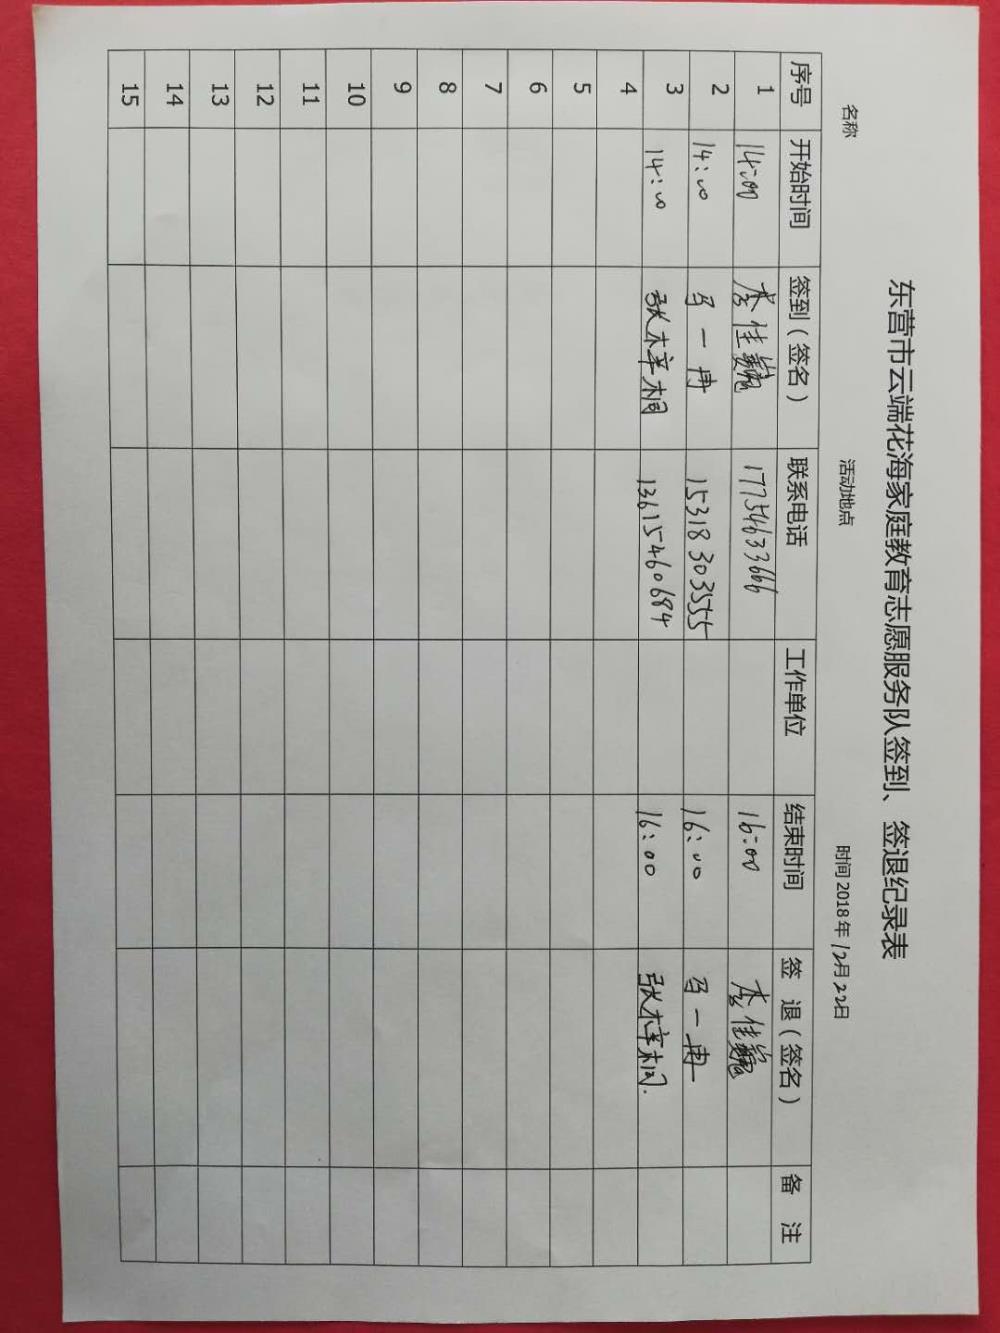 东营市云端花海家庭教育志愿服务队签到、签退纪录表
名称 活动地点 时间 2018年12月22日
序号 开始时间 签到(签名) 联系电话 工作单位 结束时间 签 退(签名) 备 注
1 14:00 李佳巍 17754633666 16:00 李佳巍
2 14:00 马一冉 15318303555 16:00 马一冉
3 14:00 张梓桐 13615460684 16:00 张梓桐
4
5
6
7
8
9
10
11
12
13
14
15